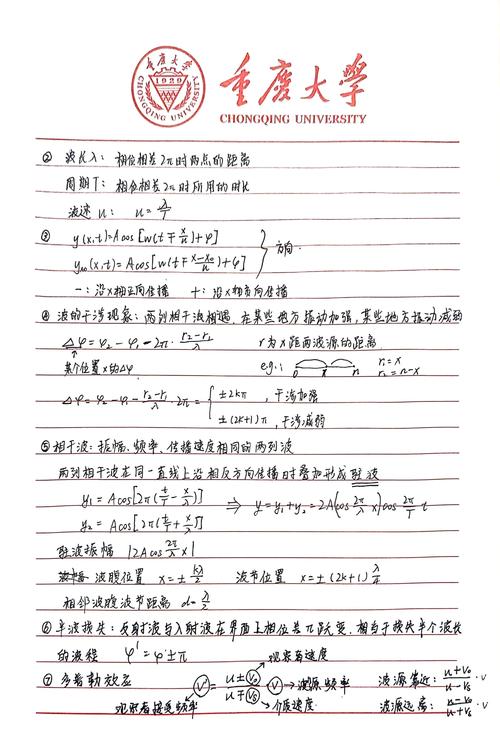 重庆大学
CHONGQING UNIVERSITY
1929
重庆大学
CHONGQING UNIVERSITY
② 波长λ: 相位相差2π时两点的距离
周期T: 相位相差2π时所用的时长
波速u: u=λ/T
③ y(x,t)=Acos[w(t∓x/u)+φ]
yx0(x,t)=Acos[w(t∓(x-x0)/u)+φ] } 方向
-: 沿x轴正向传播 +: 沿x轴负向传播
④ 波的干涉现象: 两列相干波相遇, 在某些地方振动加强, 某些地方振动减弱
Δφ=φ2-φ1-2π·(r2-r1)/λ r为x距两波源的距离
某个位置x的Δφ eg: 0 x n r1=x r2=n-x
Δφ=φ2-φ1-(r2-r1)/λ·2π={ ±2kπ, 干涉加强
±(2k+1)π, 干涉减弱
⑤ 相干波: 振幅、频率、传播速度相同的两列波
两列相干波在同一直线上沿相反方向传播时叠加形成驻波
y1=Acos[2π(t/T-x/λ)]
y2=Acos[2π(t/T+x/λ)] ⇒ y=y1+y2=2A(cos 2π/λ x)cos 2π/T t
驻波振幅 |2Acos 2π/λ x|
波腹位置 x=±kλ/2 波节位置 x=±(2k+1)λ/4
相邻波腹波节距离 d=λ/2
⑥ 半波损失: 反射波与入射波在界面上相位差π跃变, 相当于损失半个波长
的波程 φ'=φ±π
⑦ 多普勒效应 观察者速度
ν'=(u±v0)/(u∓vs) ν→波源频率 波源靠近: (u+v0)/(u-vs)·ν
观察者接受频率 介质速度 波源远离: (u-v0)/(u+vs)·ν